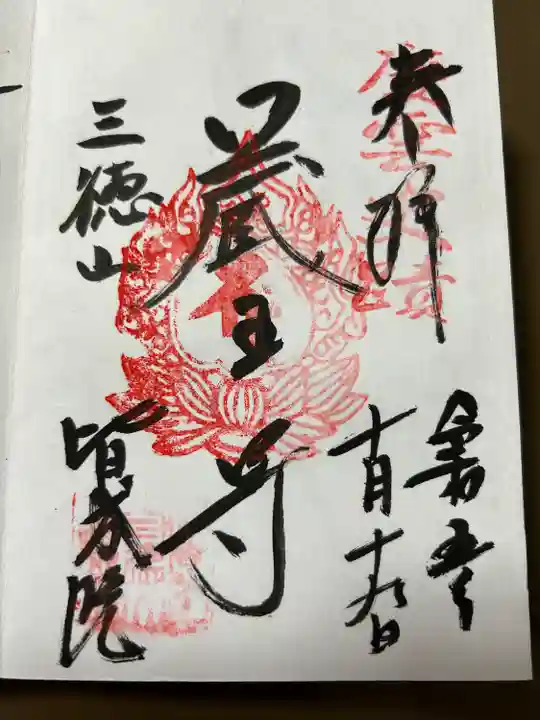 奉拝
令和五年
十一月十九日
蔵王尊
三徳山
皆成院